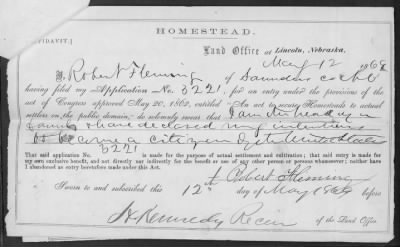 HOMESTEAD.
AFFIDAVIT.
Land Office at Lincoln, Nebraska,
May 12 1868
I, Robert Fleming of Saunders
having filed my Application No. 3221, for an entry under the provisions of the
act of Congress approved May 20, 1862, entitled "An act to secure Homesteads to actual
settlers on the public domain," do solemnly swear that I am the head of a
family & have declared my intentions
to become a citizen of the United States
That said application No. 3221 is made for the purpose of actual settlement and cultivation; that said entry is made for
my own exclusive benefit, and not directly or indirectly for the benefit or use of any other person or persons whomsoever; neither have
I abandoned an entry heretofore made under this Act.
Robert Fleming
Sworn to and subscribed this 12th day of May 1868 before
Kennedy Recr
of the Land Office